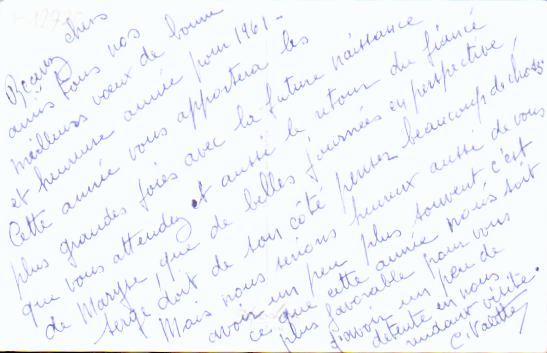 Recevez chers
amis tous nos
meilleurs vœux de bonne
et heureuse année pour 1961 -
Cette année vous apportera les
plus grandes joies avec la future naissance
que vous attendez et aussi le retour du fiancé
de Maryse, que de belles journées en perspective,
Serge doit de son côté penser beaucoup de choses.
Mais nous serions heureux aussi de vous
avoir un peu plus souvent c'est
ce que cette année nous soit
plus favorable pour vous
d'avoir un peu de
détente en nous
rendant visite.